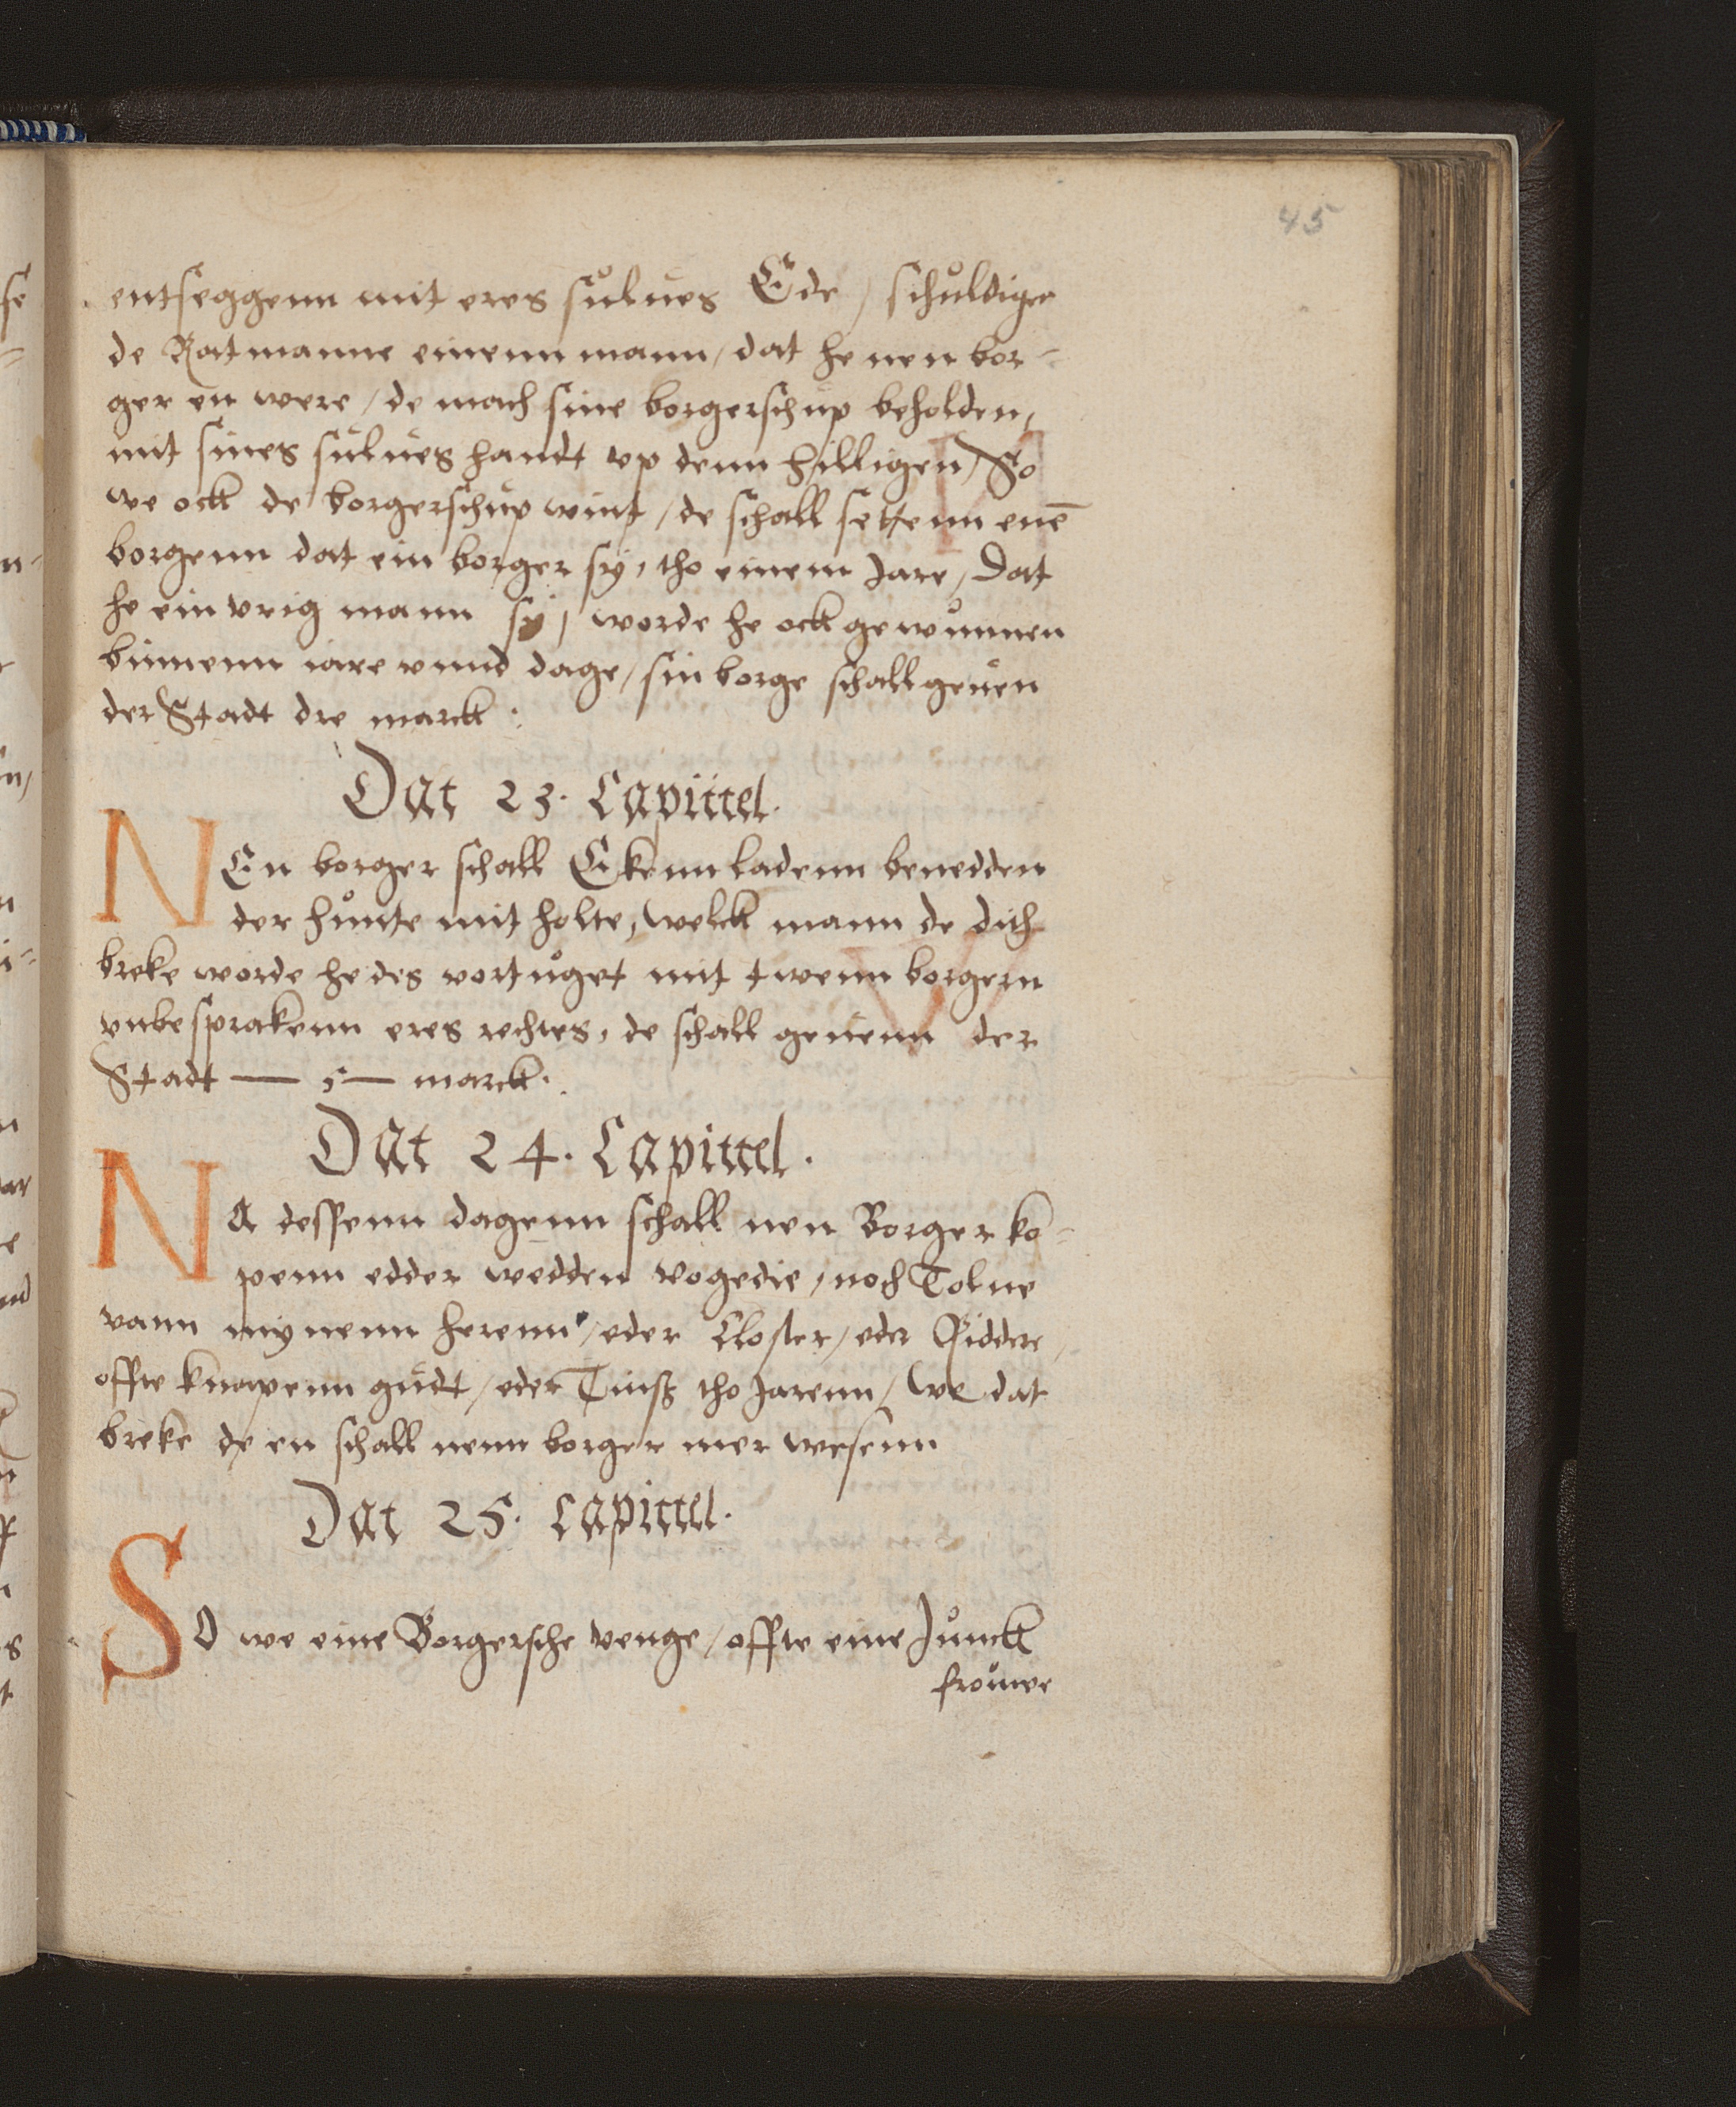 45
entseggenn mit eres sůlues Ede / schůldiger
de Ratmanne einenn mann / dat he nen bor-
ger en were / de mach sine borgerschup beholden,
mit sines sůlues handt vp denn hilligen / So
we ock de borgerschup wint / de schall settenn enē
borgenn dat ein borger sy, tho einem Jare / Dat
he ein vrig mann sÿ / worde he ock gewůnnen
binnenn iare vnnd dage / sin borge schall geuen
der Stadt dre marck :
Dat 23. Capittel.
NEn borger schall Ekenn ladenn benedden
der hůnte mit holte, welck mann de dith
breke worde he des vortůget mit twenn borgern
vnbesprakenn eres rechtes, de schall geuenn der
Stadt — 5 — marck.
Dat 24. Capittel.
NA dessenn dagenn schall nen Borger ko-
penn edder wedden vogedie / noch Tolne
vann mynenn herenn / eder Closter / eder Ridder,
offte knapenn gůdt / eder Tinß tho Jarenn / We dat
breke de en schall nenn borger mer wesenn
Dat 25. Capittel.
SO we eine Borgersche venge / offte eine Jůnck
froůwe